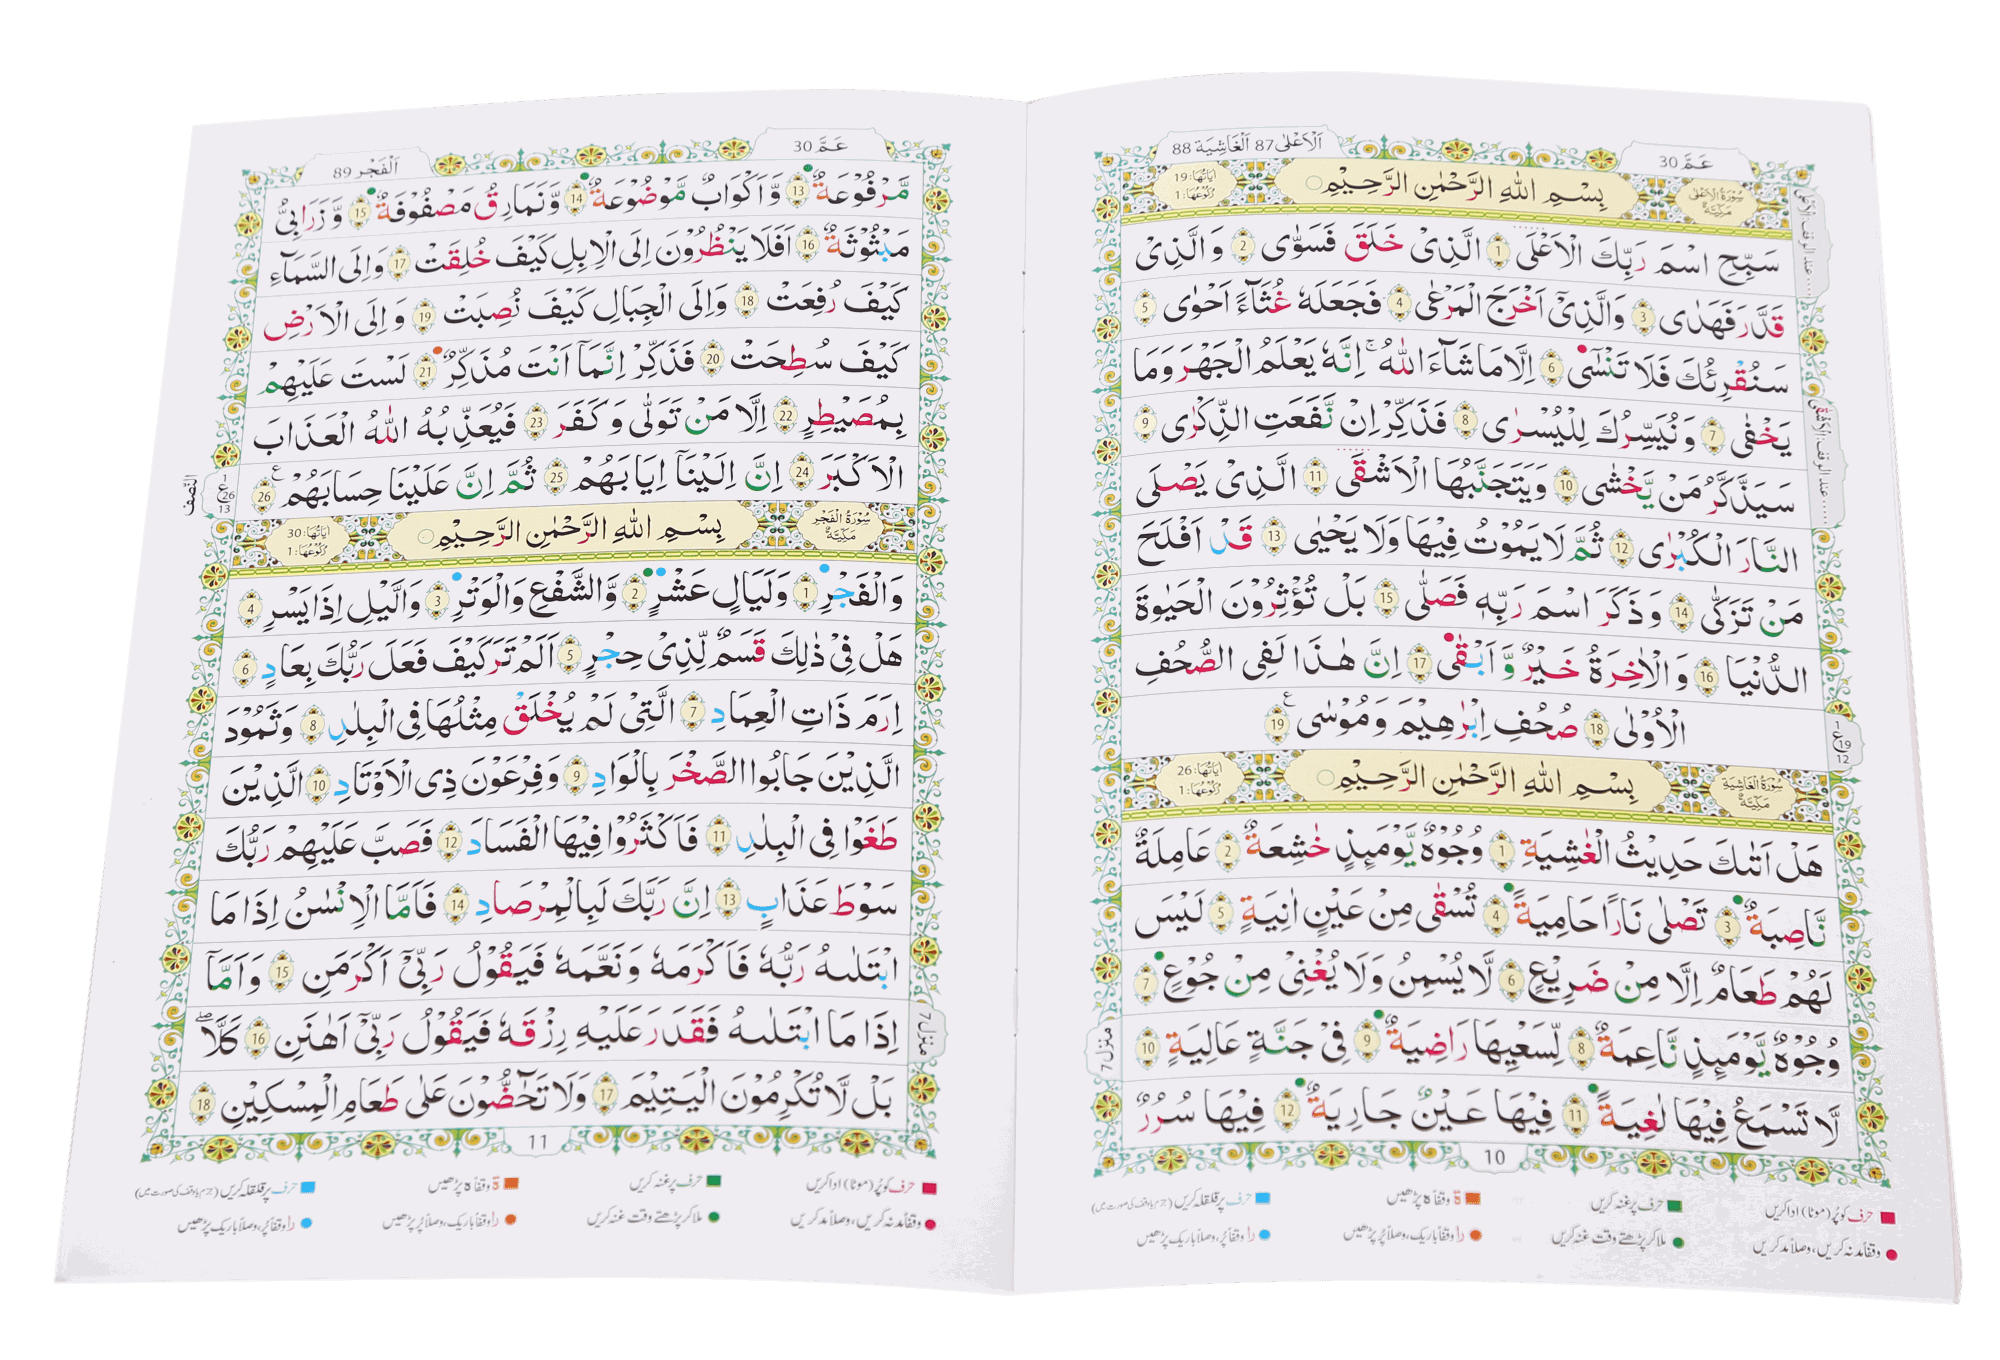 عَمَّ 30
اَلْاَعْلٰى 87 اَلْغَاشِيَة 88
سُوْرَةُ الْاَعْلٰى مَكِّيَّةٌ
بِسْمِ اللّٰهِ الرَّحْمٰنِ الرَّحِيْمِ
اٰيَاتُهَا: 19 رُكُوْعُهَا: 1
سَبِّحِ اسْمَ رَبِّكَ الْاَعْلَى 1 الَّذِىْ خَلَقَ فَسَوّٰى 2 وَالَّذِىْ
قَدَّرَ فَهَدٰى 3 وَالَّذِىْٓ اَخْرَجَ الْمَرْعٰى 4 فَجَعَلَهٗ غُثَآءً اَحْوٰى 5
سَنُقْرِئُكَ فَلَا تَنْسٰٓى 6 اِلَّا مَا شَآءَ اللّٰهُ ؕ اِنَّهٗ يَعْلَمُ الْجَهْرَ وَمَا
يَخْفٰى 7 وَنُيَسِّرُكَ لِلْيُسْرٰى 8 فَذَكِّرْ اِنْ نَّفَعَتِ الذِّكْرٰى 9
سَيَذَّكَّرُ مَنْ يَّخْشٰى 10 وَيَتَجَنَّبُهَا الْاَشْقَى 11 الَّذِىْ يَصْلَى
النَّارَ الْكُبْرٰى 12 ثُمَّ لَا يَمُوْتُ فِيْهَا وَلَا يَحْيٰى 13 قَدْ اَفْلَحَ
مَنْ تَزَكّٰى 14 وَذَكَرَ اسْمَ رَبِّهٖ فَصَلّٰى 15 بَلْ تُؤْثِرُوْنَ الْحَيٰوةَ
الدُّنْيَا 16 وَالْاٰخِرَةُ خَيْرٌ وَّاَبْقٰى 17 اِنَّ هٰذَا لَفِى الصُّحُفِ
الْاُوْلٰى 18 صُحُفِ اِبْرٰهِيْمَ وَمُوْسٰى 19
سُوْرَةُ الْغَاشِيَةِ مَكِّيَّةٌ
بِسْمِ اللّٰهِ الرَّحْمٰنِ الرَّحِيْمِ
اٰيَاتُهَا: 26 رُكُوْعُهَا: 1
هَلْ اَتٰىكَ حَدِيْثُ الْغٰشِيَةِ 1 وُجُوْهٌ يَّوْمَئِذٍ خٰشِعَةٌ 2 عَامِلَةٌ
نَّاصِبَةٌ 3 تَصْلٰى نَارًا حَامِيَةً 4 تُسْقٰى مِنْ عَيْنٍ اٰنِيَةٍ 5 لَيْسَ
لَهُمْ طَعَامٌ اِلَّا مِنْ ضَرِيْعٍ 6 لَّا يُسْمِنُ وَلَا يُغْنِىْ مِنْ جُوْعٍ 7
وُجُوْهٌ يَّوْمَئِذٍ نَّاعِمَةٌ 8 لِّسَعْيِهَا رَاضِيَةٌ 9 فِىْ جَنَّةٍ عَالِيَةٍ 10
لَّا تَسْمَعُ فِيْهَا لٰغِيَةً 11 فِيْهَا عَيْنٌ جَارِيَةٌ 12 فِيْهَا سُرُرٌ
منزل 7
10
حرف کو پُر (موٹا) ادا کریں
حرف پر غنہ کریں
ة وقفاً ہ پڑھیں
حرف پر قلقلہ کریں (جزم یا وقف کی صورت میں)
وقفاً مد نہ کریں، وصلاً مد کریں
ملا کر پڑھتے وقت غنہ کریں
را وقفاً باریک، وصلاً پُر پڑھیں
را وقفاً پُر، وصلاً باریک پڑھیں
عَمَّ 30
اَلْفَجْر 89
مَّرْفُوْعَةٌ 13 وَّاَكْوَابٌ مَّوْضُوْعَةٌ 14 وَّنَمَارِقُ مَصْفُوْفَةٌ 15 وَّزَرَابِىُّ
مَبْثُوْثَةٌ 16 اَفَلَا يَنْظُرُوْنَ اِلَى الْاِبِلِ كَيْفَ خُلِقَتْ 17 وَاِلَى السَّمَآءِ
كَيْفَ رُفِعَتْ 18 وَاِلَى الْجِبَالِ كَيْفَ نُصِبَتْ 19 وَاِلَى الْاَرْضِ
كَيْفَ سُطِحَتْ 20 فَذَكِّرْ اِنَّمَآ اَنْتَ مُذَكِّرٌ 21 لَسْتَ عَلَيْهِمْ
بِمُصَيْطِرٍ 22 اِلَّا مَنْ تَوَلّٰى وَكَفَرَ 23 فَيُعَذِّبُهُ اللّٰهُ الْعَذَابَ
الْاَكْبَرَ 24 اِنَّ اِلَيْنَآ اِيَابَهُمْ 25 ثُمَّ اِنَّ عَلَيْنَا حِسَابَهُمْ 26
النصف
سُوْرَةُ الْفَجْرِ مَكِّيَّةٌ
بِسْمِ اللّٰهِ الرَّحْمٰنِ الرَّحِيْمِ
اٰيَاتُهَا: 30 رُكُوْعُهَا: 1
وَالْفَجْرِ 1 وَلَيَالٍ عَشْرٍ 2 وَّالشَّفْعِ وَالْوَتْرِ 3 وَالَّيْلِ اِذَا يَسْرِ 4
هَلْ فِىْ ذٰلِكَ قَسَمٌ لِّذِىْ حِجْرٍ 5 اَلَمْ تَرَ كَيْفَ فَعَلَ رَبُّكَ بِعَادٍ 6
اِرَمَ ذَاتِ الْعِمَادِ 7 الَّتِىْ لَمْ يُخْلَقْ مِثْلُهَا فِى الْبِلٰدِ 8 وَثَمُوْدَ
الَّذِيْنَ جَابُوا الصَّخْرَ بِالْوَادِ 9 وَفِرْعَوْنَ ذِى الْاَوْتَادِ 10 الَّذِيْنَ
طَغَوْا فِى الْبِلٰدِ 11 فَاَكْثَرُوْا فِيْهَا الْفَسَادَ 12 فَصَبَّ عَلَيْهِمْ رَبُّكَ
سَوْطَ عَذَابٍ 13 اِنَّ رَبَّكَ لَبِالْمِرْصَادِ 14 فَاَمَّا الْاِنْسٰنُ اِذَا مَا
ابْتَلٰىهُ رَبُّهٗ فَاَكْرَمَهٗ وَنَعَّمَهٗ فَيَقُوْلُ رَبِّىْٓ اَكْرَمَنِ 15 وَاَمَّآ
اِذَا مَا ابْتَلٰىهُ فَقَدَرَ عَلَيْهِ رِزْقَهٗ فَيَقُوْلُ رَبِّىْٓ اَهَانَنِ 16 كَلَّا
بَلْ لَّا تُكْرِمُوْنَ الْيَتِيْمَ 17 وَلَا تَحٰٓضُّوْنَ عَلٰى طَعَامِ الْمِسْكِيْنِ 18
منزل 7
11
حرف کو پُر (موٹا) ادا کریں
حرف پر غنہ کریں
ة وقفاً ہ پڑھیں
حرف پر قلقلہ کریں (جزم یا وقف کی صورت میں)
وقفاً مد نہ کریں، وصلاً مد کریں
ملا کر پڑھتے وقت غنہ کریں
را وقفاً باریک، وصلاً پُر پڑھیں
را وقفاً پُر، وصلاً باریک پڑھیں